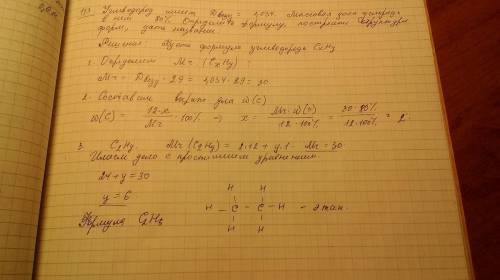 Углеводород имеет Dвозд = 1,034. Массовая доля углерода
в нем 80%. Определить формулу, построить структурн
форм, дать название.
Решение: Пусть формула углеводорода CxHy
1. Определяем Mr (CxHy)
Mr = Dвозд · 29 = 1,034 · 29 = 30
2. Составим выраж для ω(C)
ω(C) = 12·x / Mr · 100% → x = Mr · ω(C) / 12 · 100% = 30 · 80% / 12 · 100% = 2
3. C2Hy Mr (C2Hy) = 2·12 + y·1 Mr = 30
Имеем дело с простейшим уравнением
24 + y = 30
y = 6
Формула C2H6
H H
H – C – C – H – этан.
H H